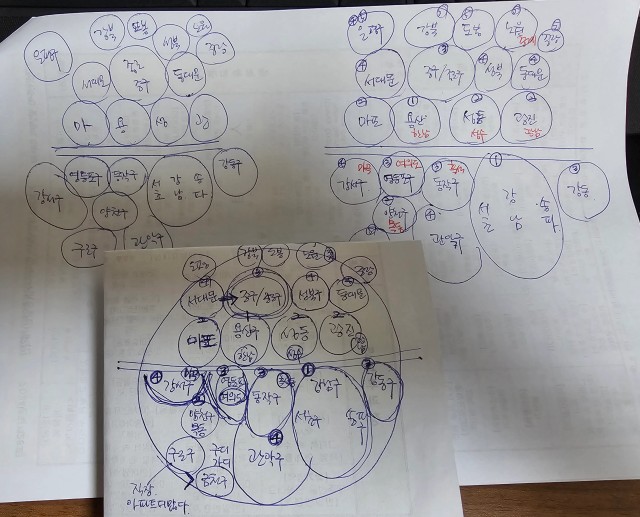 강북 도봉
은평구 성북 중랑
서대문 종로 중구 동대문
마 용 성 광
영등포구 동작구 서초 강남 송파 강동구
강서구
양천구
구로구 관악구
은평 강북 도봉 노원 중랑
서대문 중구/종로구 성북 동대문
마포 용산 성동 광진
한남 성수
강서구 마곡 영등포구 여의도 동작구 서초 강남 송파 강동
양천구 목동
관악구
강북 도봉 노원 중랑
서대문 중구/종로구 성북구 동대문
마포 용산구 성동 광진
한남 성수
강서구 영등포 여의도 동작구 서초구 강남구 송파 강동구
양천구 목동
구로구 관악구
금천구
직장
아파트 더 많다.